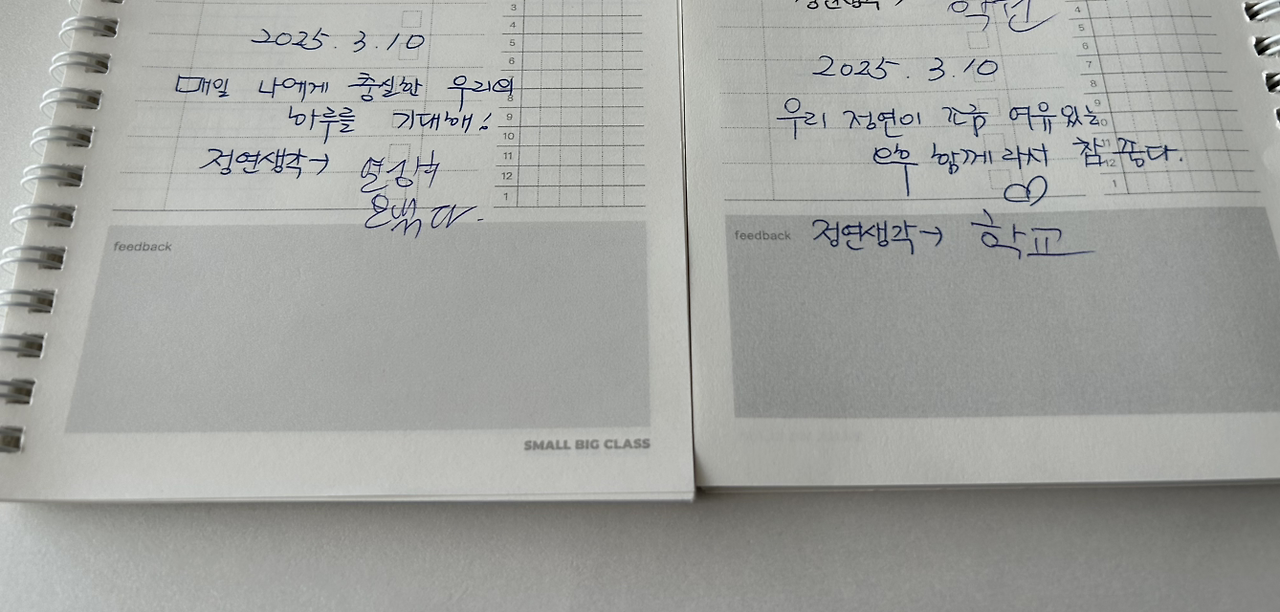 3
4
5
6
8
9
10
11
12
1
2025. 3. 10
매일 나에게 충실한 우리의
하루를 기대해?
정연생각→ 열심히
feedback
SMALL BIG CLASS
정연생각→
4
5
6
7
8
9
10
11
12
1
2025. 3. 10
우리 정연이 조금 여유있는
오후 함께라서 참 좋다.
feedback
정연생각→ 학교